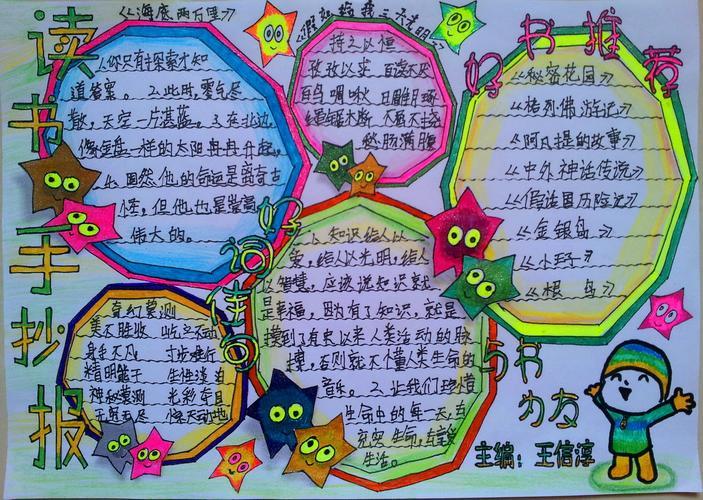 读书手抄报
《海底两万里》
1、你只有探索才知
道答案。2、此时,雾气尽
散,天空一片湛蓝。3、在北边,
像金盘一样的太阳冉冉升起。
4、固然他的命运是离奇古
怪,但他也是崇高
伟大的。
《假如给我三天光明》
持之以恒
孜孜以求 百读不厌
百鸟啁啾 日雕月琢
愁肠满腹
好书推荐
《秘密花园》
《格列佛游记》
《阿凡提的故事》
《中外神话传说》
《假话国历险记》
《金银岛》
《小王子》
《根鸟》
好词佳句
变幻莫测
美不胜收 屹立不动
身手不凡 寸步难行
精明能干 生性淡泊
神秘莫测 光彩夺目
无穷无尽 惊天动地
1、知识给人以
爱,给人以光明,给人
以智慧,应该说知识就
是幸福,因为有了知识,就是
摸到了有史以来人类活动的脉
搏,否则就不懂人类生命的
音乐。2、让我们珍惜
生命中的每一天,去
充实生命,享受
生活。
与书
为友
主编:王信淳